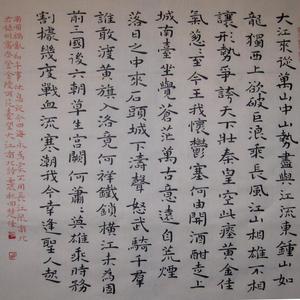 大江來從萬山中山勢盡與江流東鍾山如
龍獨西上欲破巨浪乘長風江山相雄不相
讓形勢爭誇天下壯秦皇空此瘞黃金佳
氣葱々至今王我懷鬱塞何由開酒酣走上
城南臺坐覺蒼茫萬古意遠自荒煙
落日之中來石頭城下濤聲怒武騎千群
誰敢渡黃旗入洛竟何祥鐵鎖橫江未為固
前三國後六朝草生宮闕何蕭々英雄乘時務
割據幾度戰血流寒潮我今幸逢聖人起
南國禍亂初平事休息從今四海永為家不用長江限南北
登金陵雨花臺望大江